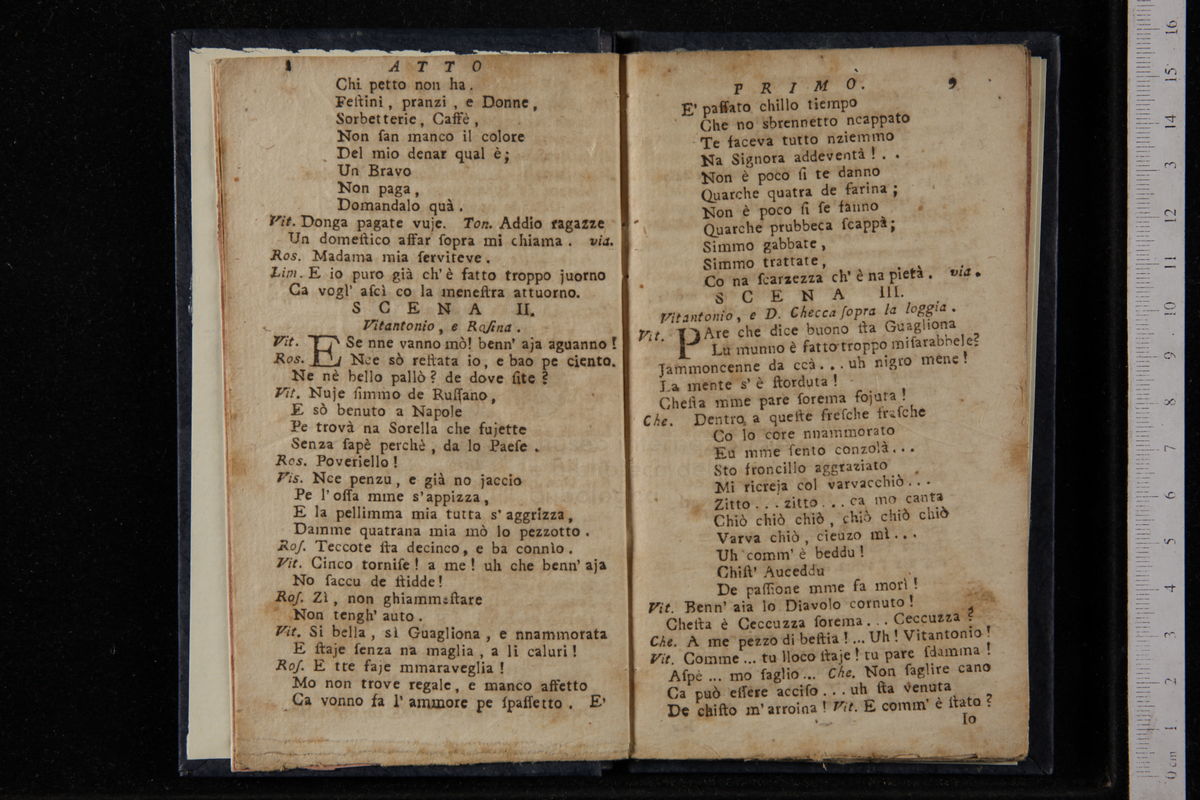 8 A T T O
Chi petto non ha.
Feſtini, pranzi, e Donne,
Sorbetterie, Caffè,
Non ſan manco il colore
Del mio denar qual è;
Un Bravo
Non paga,
Domandalo quà.
Vit. Donga pagate vuje. Ton. Addio ragazze
Un domeſtico affar ſopra mi chiama. via.
Ros. Madama mia ſerviteve.
Lim. E io puro già ch' è fatto troppo juorno
Ca vogl' aſcì co la meneſtra attuorno.
S C E N A II.
Vitantonio, e Roſina.
Vit. E Se nne vanno mò! benn' aja aguanno!
Ros. Nce sò reſtata io, e bao pe ciento.
Ne nè bello pallò? de dove ſite?
Vit. Nuje ſimmo de Ruſſano,
E sò benuto a Napole
Pe trovà na Sorella che fujette
Senza ſapè perchè, da lo Paeſe.
Ros. Poveriello!
Vis. Nce penzu, e già no jaccio
Pe l' oſſa mme s' appizza,
E la pellimma mia tutta s' aggrizza,
Damme quatrana mia mò lo pezzotto.
Roſ. Teccote ſta decinco, e ba connìo.
Vit. Cinco torniſe! a me! uh che benn' aja
No ſaccu de ſtidde!
Roſ. Zì, non ghiammeſtare
Non tengh' auto.
Vit. Si bella, sì Guagliona, e nnammorata
E ſtaje ſenza na maglia, a li caluri!
Roſ. E tte faje mmaraveglia!
Mo non trove regale, e manco affetto
Ca vonno fa l' ammore pe ſpaſſetto. E'
P R I M O. 9
E' paſſato chillo tiempo
Che no sbrennetto ncappato
Te faceva tutto nziemmo
Na Signora addeventà! . .
Non è poco ſi te danno
Quarche quatra de farina;
Non è poco ſi ſe fanno
Quarche prubbeca ſcappà;
Simmo gabbate,
Simmo trattate,
Co na ſcarzezza ch' è na pietà. via.
S C E N A III.
Vitantonio, e D. Checca ſopra la loggia.
Vit. PAre che dice buono ſta Guagliona
Lu munno è fatto troppo miſarabbele?
Jammoncenne da ccà... uh nigro mene!
La mente s' è ſtorduta!
Cheſta mme pare ſorema fojuta!
Che. Dentro a queſte freſche fraſche
Co lo core nnammorato
Eu mme ſento conzolà...
Sto froncillo aggraziato
Mi ricreja col varvacchiò...
Zitto... zitto... ca mo canta
Chiò chiò chiò, chiò chiò chiò
Varva chiò, cieuzo mì...
Uh comm' è beddu!
Chiſt' Auceddu
De paſſione mme fa morì!
Vit. Benn' aia lo Diavolo cornuto!
Cheſta è Ceccuzza ſorema... Ceccuzza?
Che. A me pezzo di beſtia!... Uh! Vitantonio!
Vit. Comme... tu lloco ſtaje! tu pare ſdamma!
Aſpè... mo ſaglio... Che. Non ſaglire cano
Ca può eſſere acciſo... uh ſta venuta
De chiſto m' arroina! Vit. E comm' è ſtato?
Io
16
15
14
13
12
11
10
9
8
7
6
5
4
3
2
1
0 cm